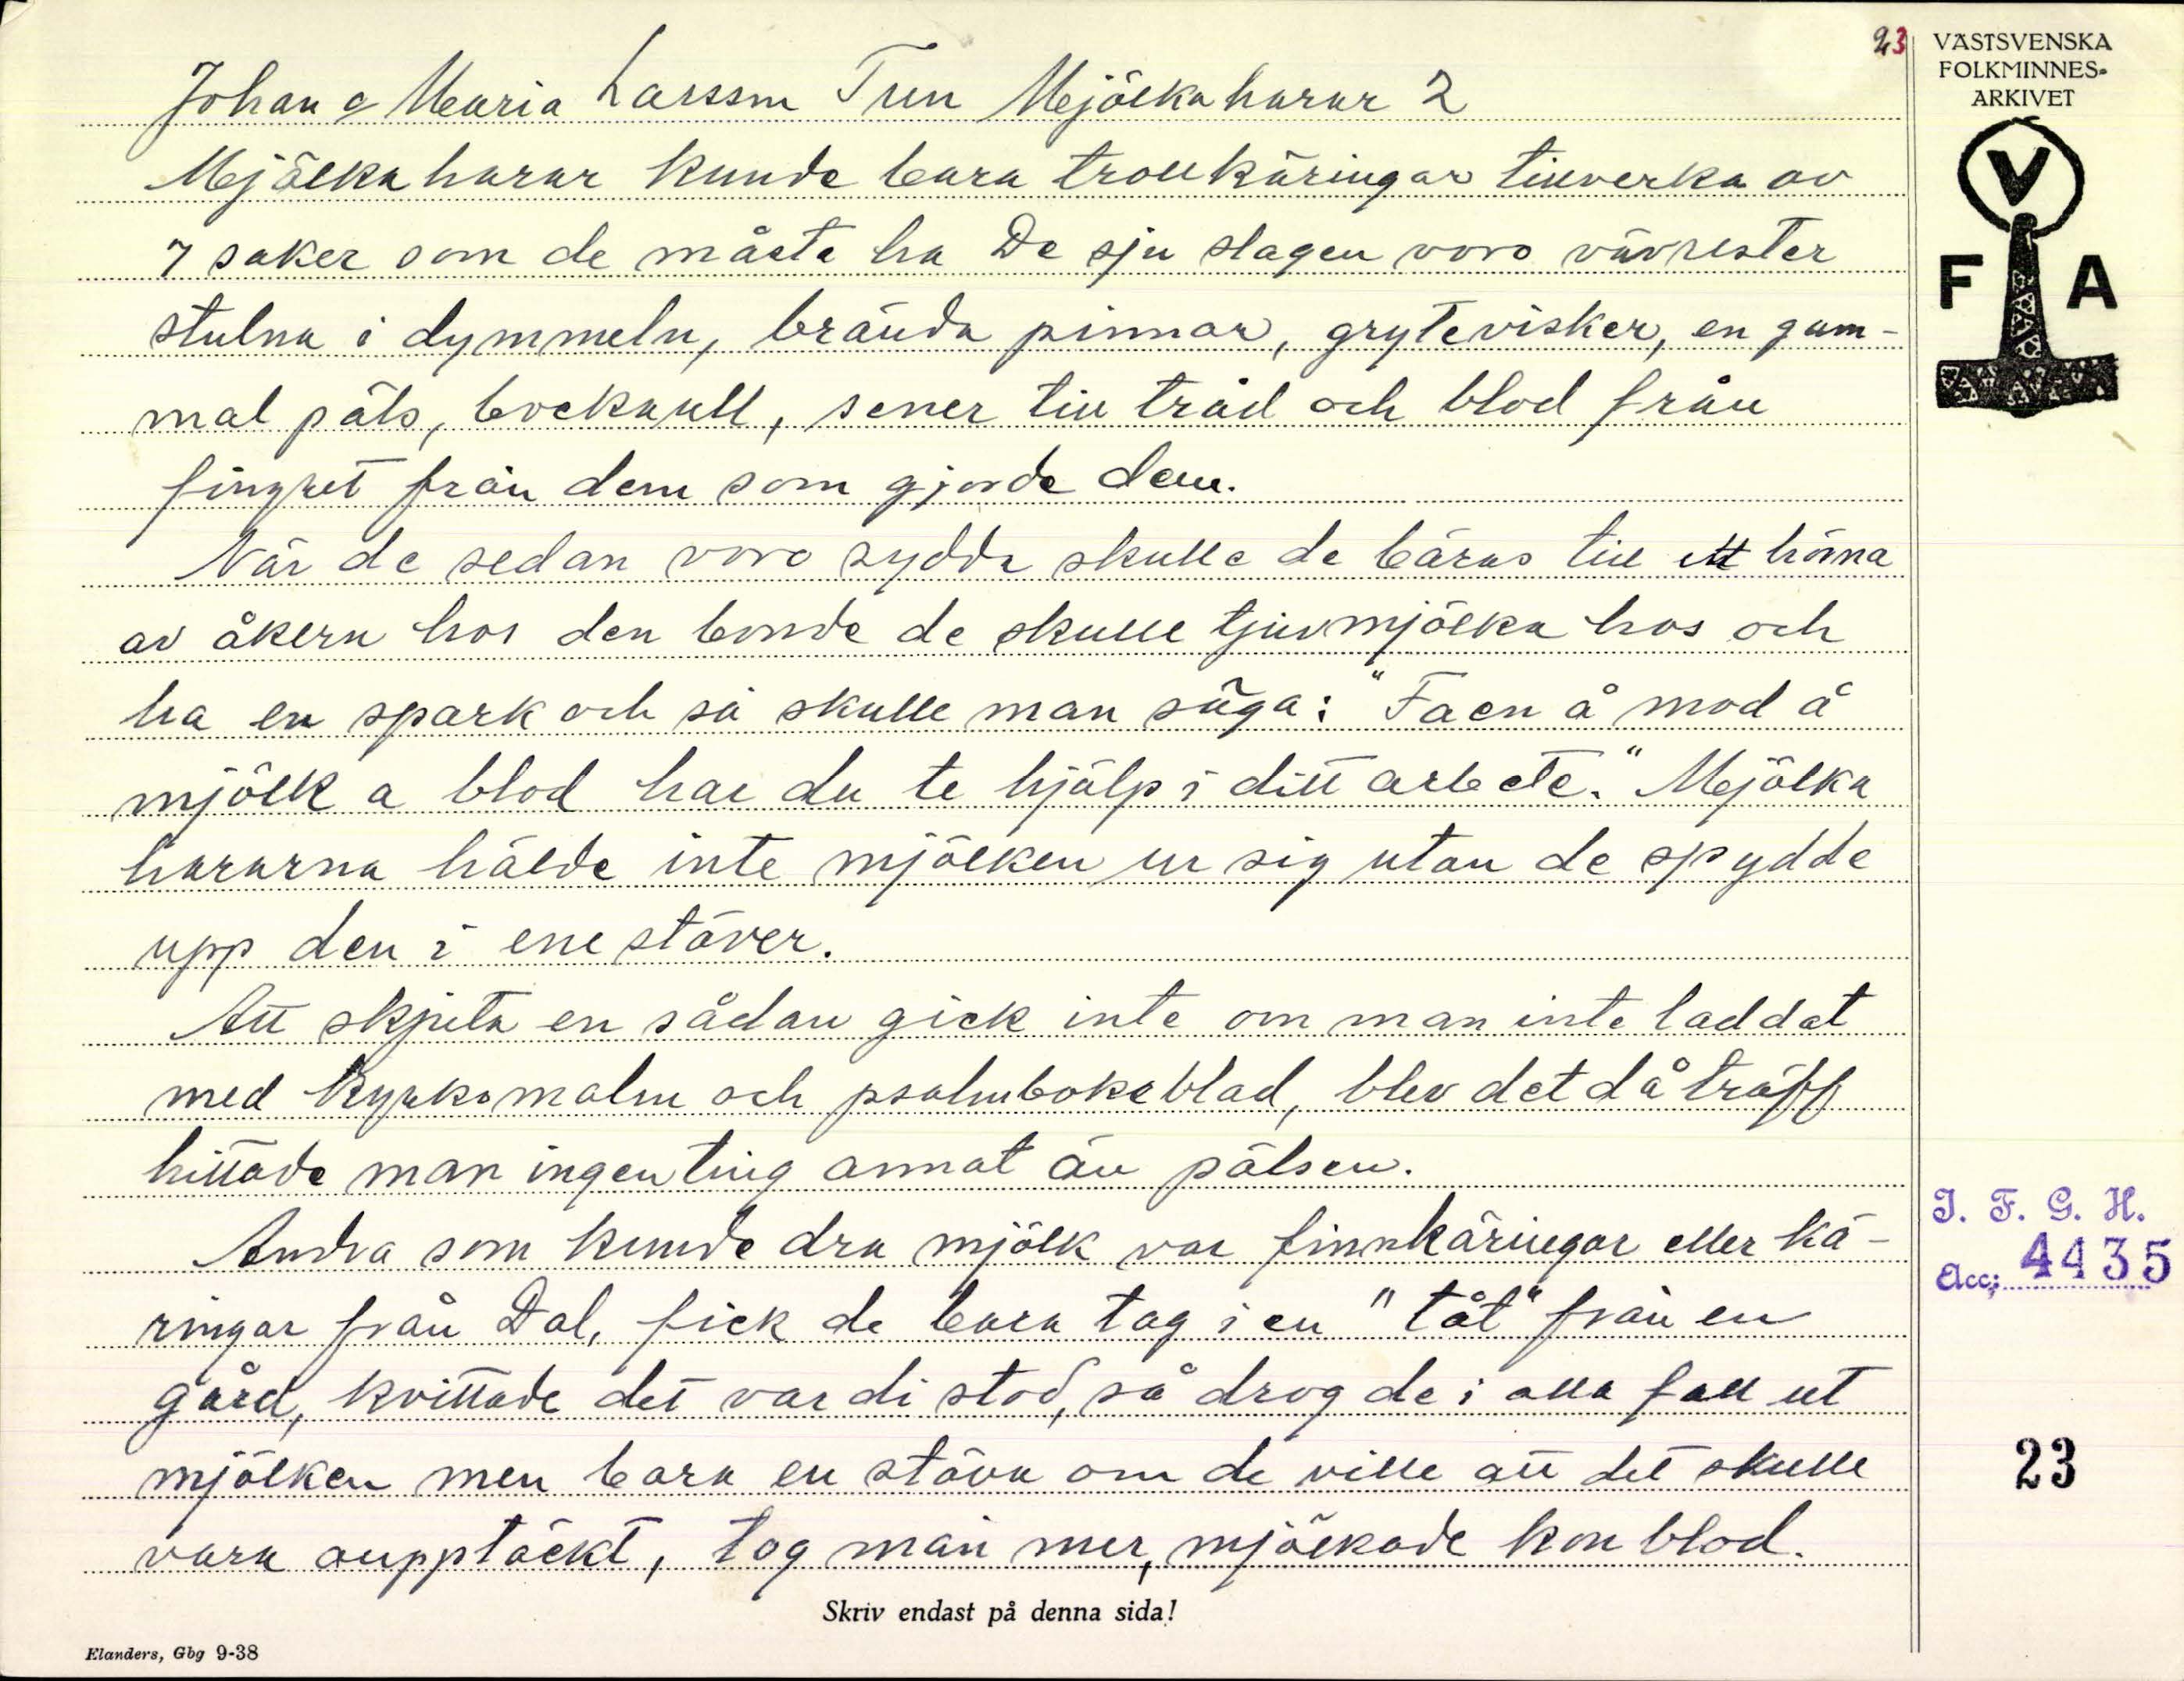 23
VÄSTSVENSKA
FOLKMINNES-
ARKIVET
V
F A
Johan o Maria Larsson Tun Mjölkaharar 2
Mjölkaharar kunde bara trollkäringar tillverka av
7 saker som de måste ha De sju slagen voro vävrester
stulna i dymmeln, brända pinnar, grytevisker, en gam-
mal päls, bockaull, sener till tråd och blod från
fingret från dem som gjorde dem.
När de sedan voro sydda skulle de bäras till ett hörna
av åkern hos den bonde de skulle tjuvmjölka hos och
ha en spark och så skulle man säga: "Faen å mod å
mjölk a blod har du te hjälp i ditt arbete." Mjölka
hararna hälde inte mjölken ur sig utan de spydde
upp den i ene stäver.
Att skjuta en sådan gick inte om man inte laddat
med kyrkomalm och psalmboksblad, blev det då träff
hittade man ingenting annat än pälsen.
Andra som kunde dra mjölk var finnkäringar eller kä-
ringar från Dal, fick de bara tag i en "tåt" från en
gård, kvittade det var di stod, så drog de i alla fall ut
mjölken men bara en stäva om de ville att det skulle
vara oupptäckt, tog man mer, mjölkade kon blod.
I. F. G. H.
Acc; 4435
23
Skriv endast på denna sida!
Elanders, Gbg 9-38